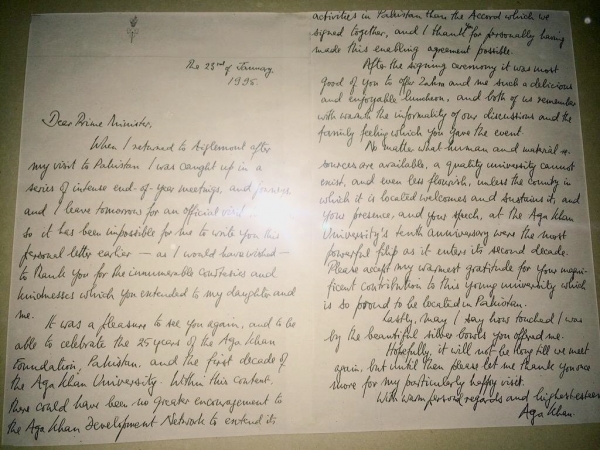 The 23rd of January,
1995.
Dear Prime Minister,
When I returned to Aiglemont after
my visit to Pakistan I was caught up in a
series of intense end-of-year meetings, and journeys,
and I leave tomorrow for an official visit
so it has been impossible for me to write you this
personal letter earlier — as I would have wished —
to thank you for the innumerable courtesies and
kindnesses which you extended to my daughter and
me.
It was a pleasure to see you again, and to be
able to celebrate the 25 years of the Aga Khan
Foundation, Pakistan, and the first decade of
the Aga Khan University. Within this context,
there could have been no greater encouragement to
the Aga Khan Development Network to extend its
activities in Pakistan than the Accord which we
signed together, and I thank you for personally having
made this enabling agreement possible.
After the signing ceremony it was most
good of you to offer Zahra and me such a delicious
and enjoyable luncheon, and both of us remember
with warmth the informality of our discussions and the
family feeling which you gave the event.
No matter what human and material re-
sources are available, a quality university cannot
exist, and even less flourish, unless the country in
which it is located welcomes and sustains it, and
your presence, and your speech, at the Aga Khan
University's tenth anniversary were the most
powerful filip as it enters its second decade.
Please accept my warmest gratitude for your magni-
ficent contribution to this young university which
is so proud to be located in Pakistan.
Lastly, may I say how touched I was
by the beautiful silver bowls you offered me.
Hopefully, it will not be long till we meet
again, but until then please let me thank you once
more for my particularly happy visit.
With warm personal regards and highest esteem
Aga Khan.